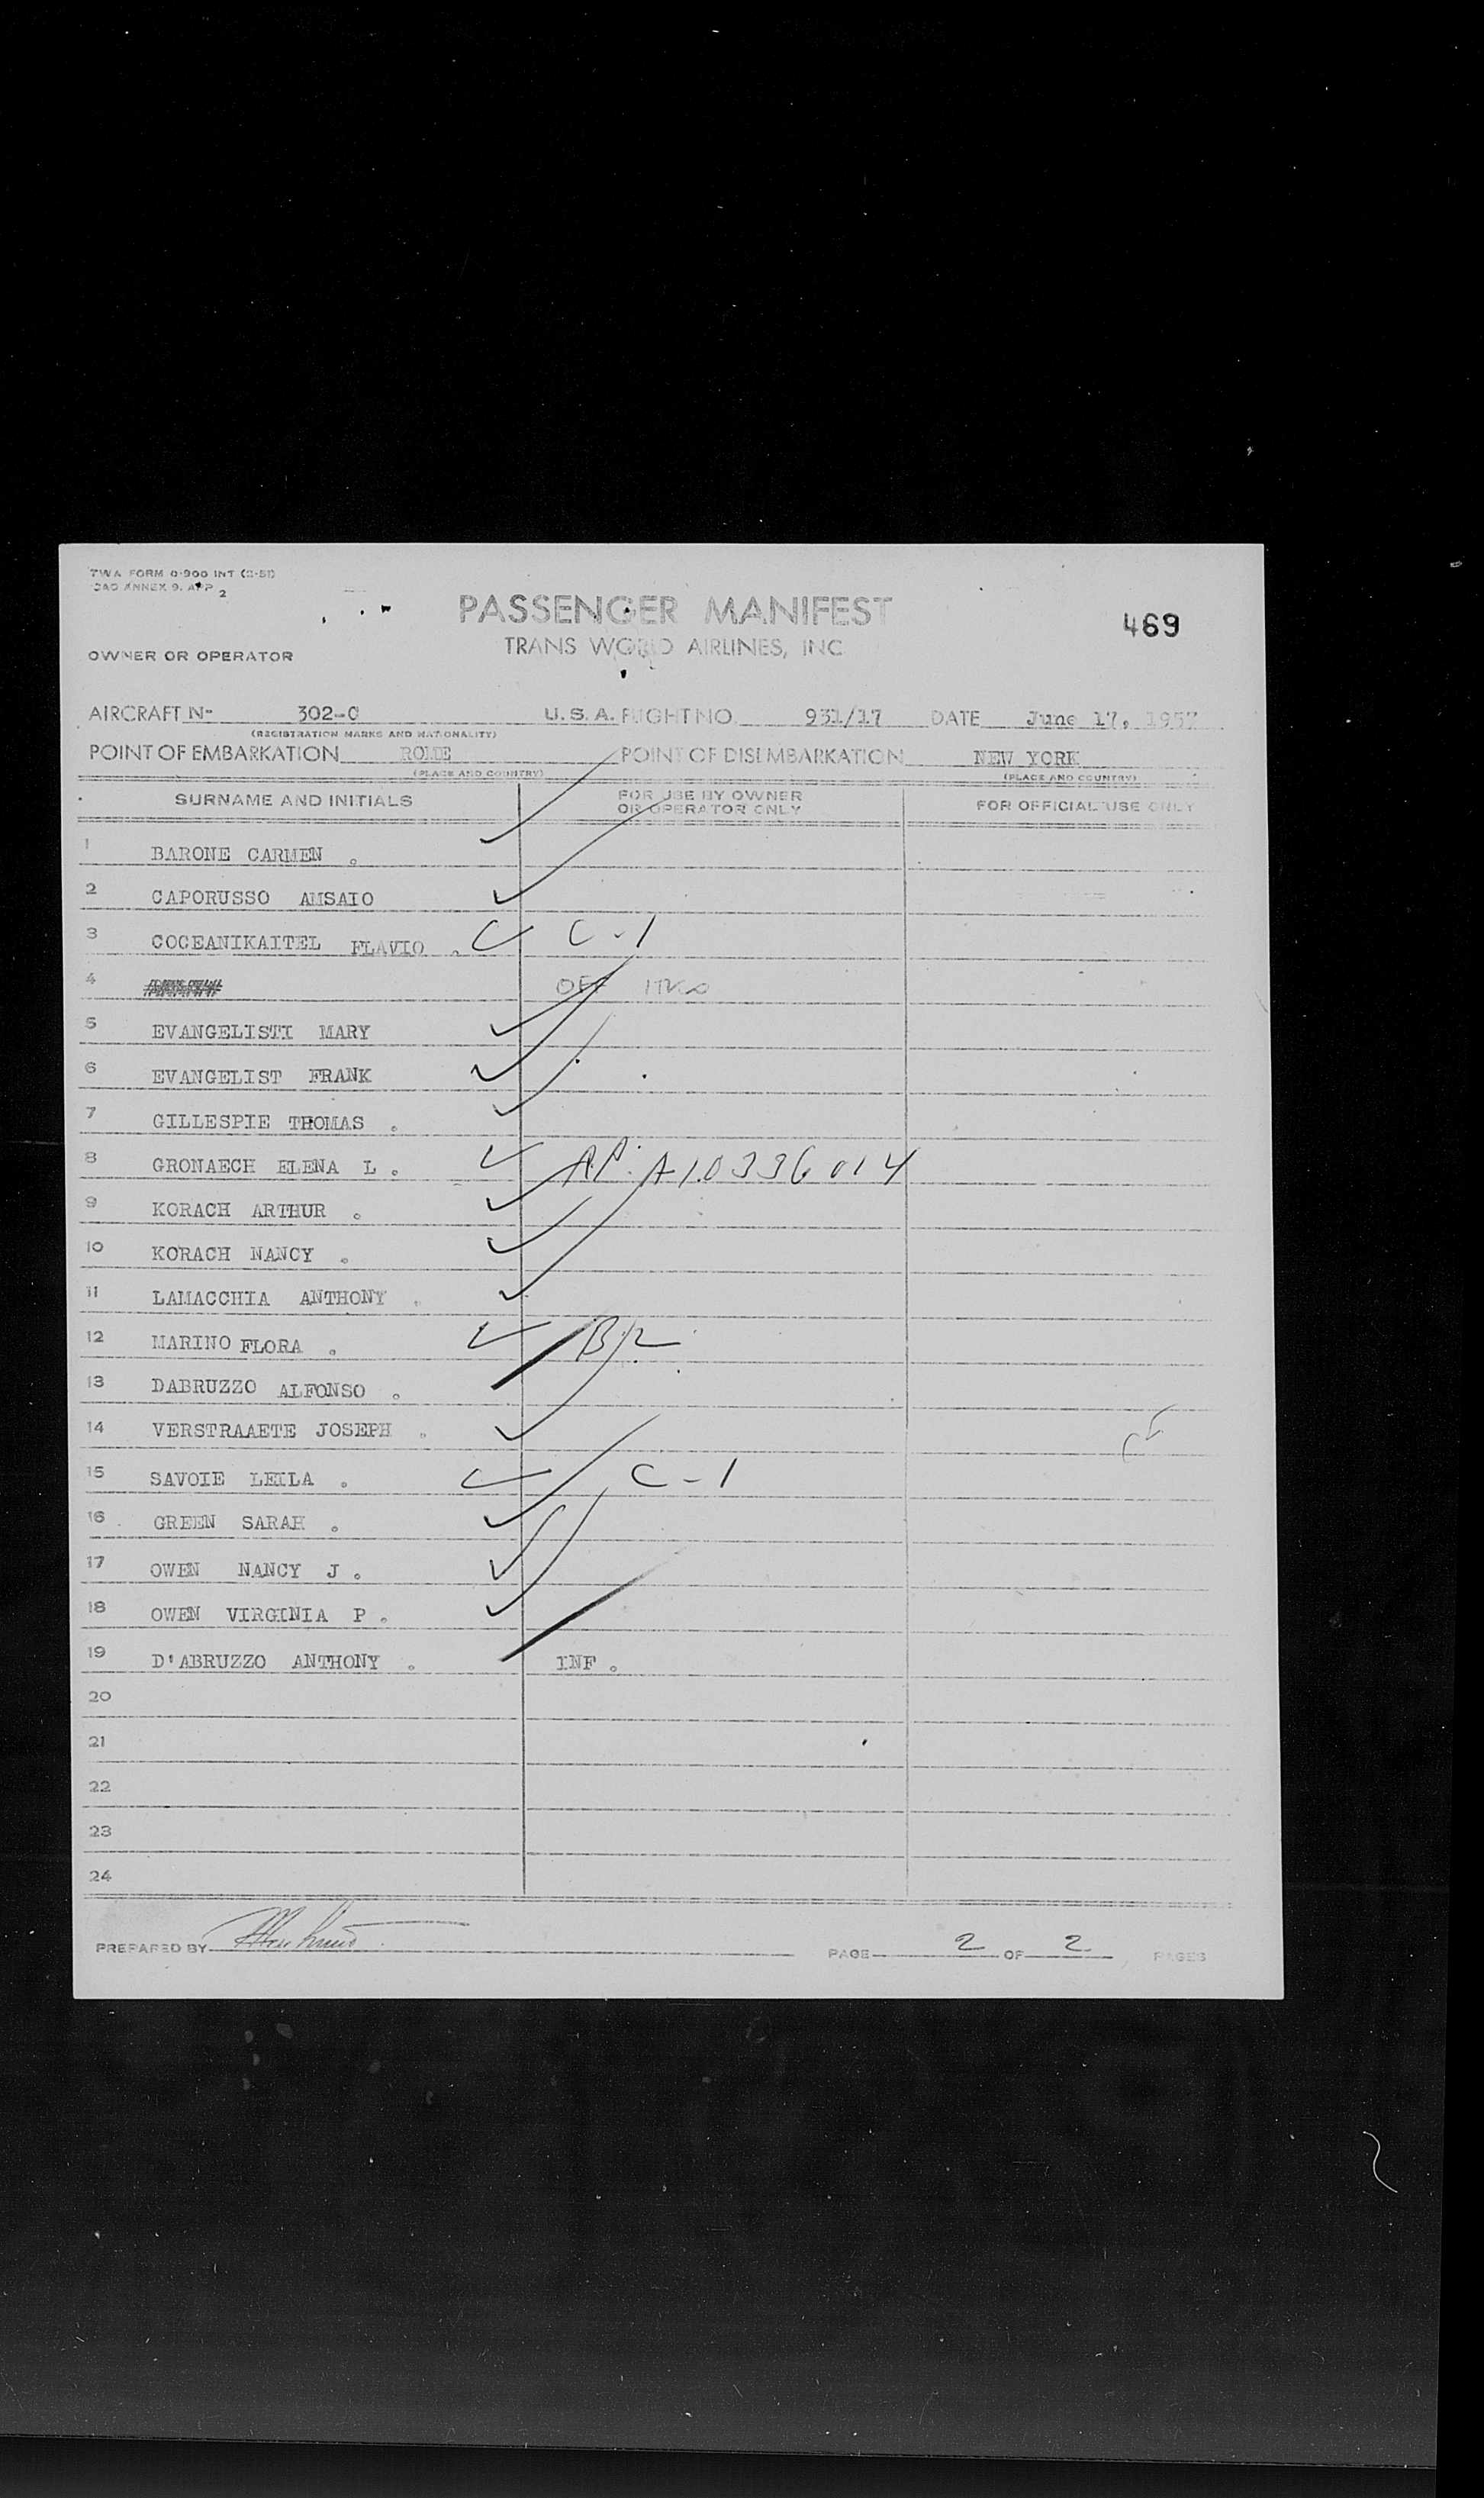 TWA FORM 0-900 INT (2-51)
ICAO ANNEX 9, APP 2
PASSENGER MANIFEST
469
TRANS WORLD AIRLINES, INC
OWNER OR OPERATOR
AIRCRAFT N- 302-C U.S.A. FLIGHT NO. 931/17 DATE June 17, 1957
(REGISTRATION MARKS AND NATIONALITY)
POINT OF EMBARKATION ROME POINT OF DISEMBARKATION NEW YORK
(PLACE AND COUNTRY) (PLACE AND COUNTRY)
SURNAME AND INITIALS FOR USE BY OWNER OR OPERATOR ONLY FOR OFFICIAL USE ONLY
1 BARONE CARMEN .
2 CAPORUSSO AMSAIO
3 COCEANIKAITEL FLAVIO . C-1
4 OFF
5 EVANGELISTI MARY
6 EVANGELIST FRANK
7 GILLESPIE THOMAS .
8 GRONAECH ELENA L . A10336014
9 KORACH ARTHUR .
10 KORACH NANCY .
11 LAMACCHIA ANTHONY .
12 MARINO FLORA .
13 DABRUZZO ALFONSO .
14 VERSTRAAETE JOSEPH .
15 SAVOIE LEILA . C-1
16 GREEN SARAH .
17 OWEN NANCY J .
18 OWEN VIRGINIA P .
19 D'ABRUZZO ANTHONY . INF .
20
21
22
23
24
PREPARED BY PAGE 2 OF 2 PAGES